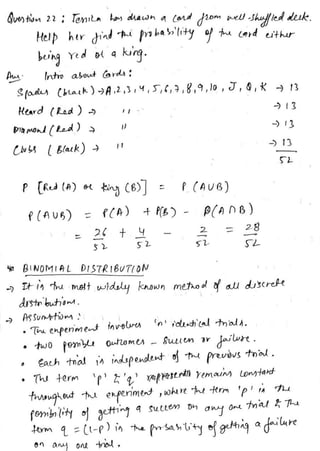 Question 22 : Jessika has drawn a card from well-shuffled deck.
Help her find the probability of the card either
being red or a king.
Ans. Intro about Cards :
Spades (black) → A, 2, 3, 4, 5, 6, 7, 8, 9, 10, J, Q, K → 13
Heard (Red) → '' → 13
Diamond (Red) → '' → 13
Clubs (Black) → '' → 13
52
P [Red (A) or King (B)] = P (A∪B)
P(A∪B) = P(A) + P(B) - P(A∩B)
= 26/52 + 4/52 - 2/52 = 28/52
BINOMIAL DISTRIBUTION
→ It is the most widely known method of all discrete
distributions.
→ Assumptions :
• The experiment involves 'n' identical trials.
• two possible outcomes - Success or failure.
• Each trial is independent of the previous trial.
• The term 'p' & 'q' represents remains constant
throughout the experiment, where the term 'p' is the
possibility of getting a success on any one trial & The
term q = (1-p) is the probability of getting a failure
on any one trial.